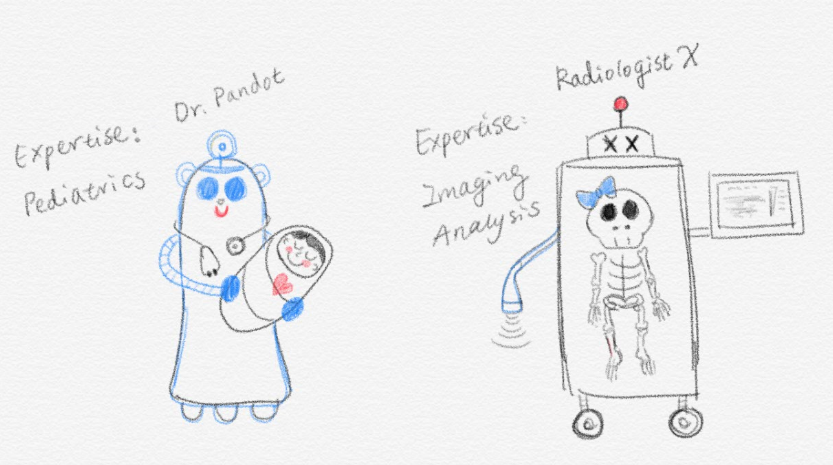 Dr. Pandot
Expertise:
Pediatrics
Radiologist X
Expertise:
Imaging
Analysis
X X